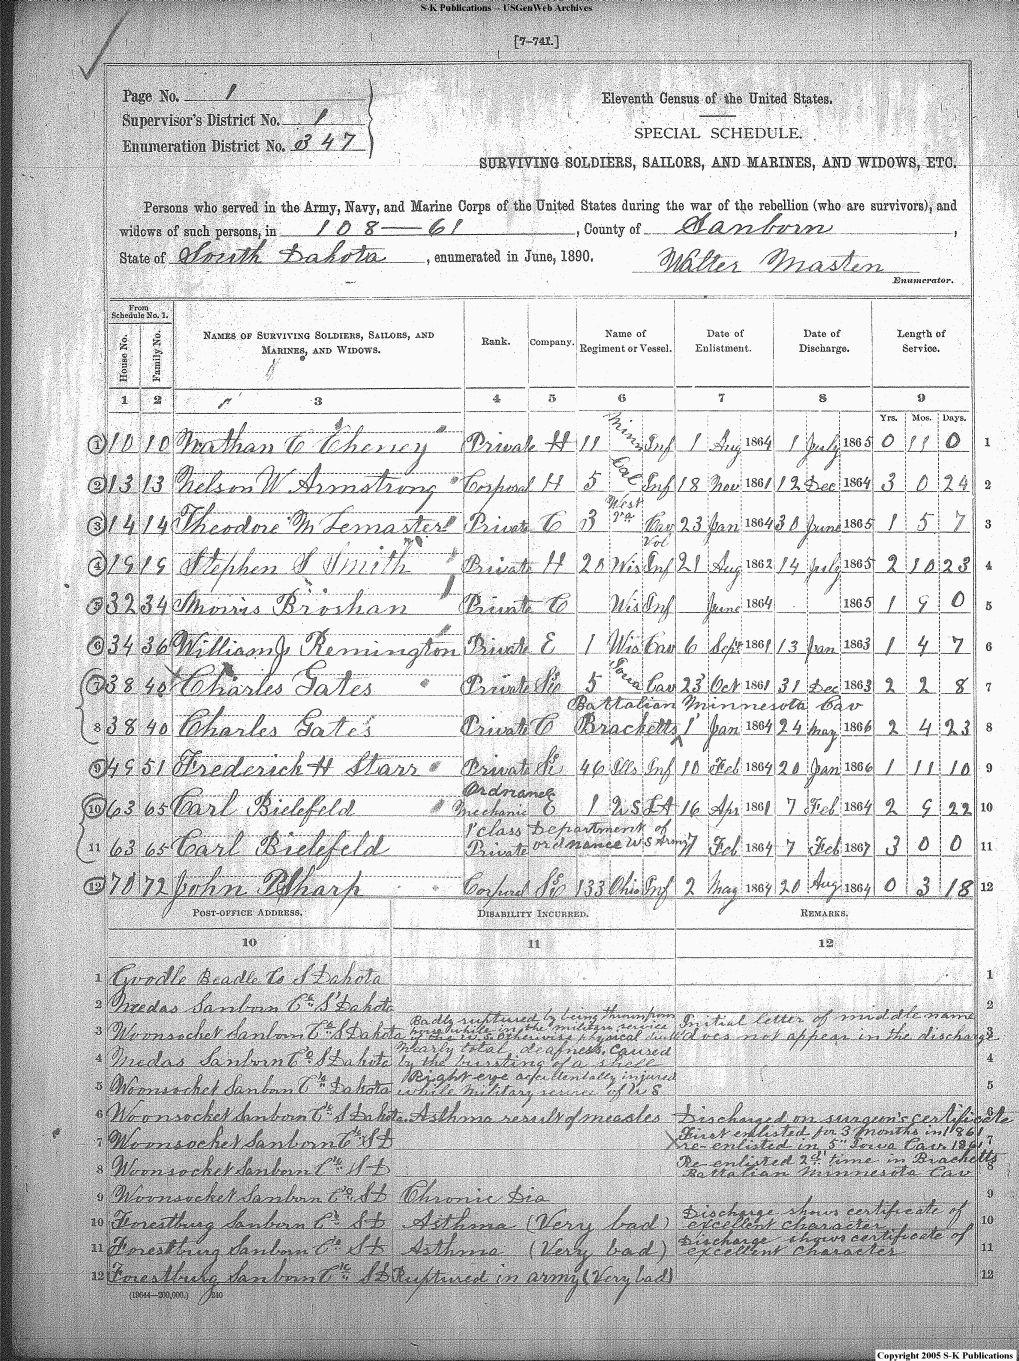 S-K Publications -- USGenWeb Archives
[7-741.]
Page No. 1
Supervisor's District No. 1
Enumeration District No. 347
Eleventh Census of the United States.
SPECIAL SCHEDULE.
SURVIVING SOLDIERS, SAILORS, AND MARINES, AND WIDOWS, ETC.
Persons who served in the Army, Navy, and Marine Corps of the United States during the war of the rebellion (who are survivors), and
widows of such persons, in 108—61, County of Sanborn,
State of South Dakota, enumerated in June, 1890. Walter Masten
Enumerator.
From Schedule No. 1.
House No. Family No. NAMES OF SURVIVING SOLDIERS, SAILORS, AND MARINES, AND WIDOWS. Rank. Company. Name of Regiment or Vessel. Date of Enlistment. Date of Discharge. Length of Service.
1 2 3 4 5 6 7 8 9
Yrs. Mos. Days.
1 10 10 Nathan C Cheney Private H 11 Minn Inf 1 Aug 1864 1 July 1865 0 11 0 1
2 13 13 Nelson W Armstrong Corporal H 5 Cal Inf 18 Nov 1861 12 Dec 1864 3 0 24 2
3 14 14 Theodore M Lemaster Private C 3 West Va Cav 23 Jan 1864 30 June 1865 1 5 7 3
4 19 19 Stephen S Smith Private H 20 Wis Vol Inf 21 Aug 1862 14 July 1865 2 10 23 4
5 32 34 Morris Broshan Private C Wis Inf June 1864 1865 1 9 0 5
6 34 36 William J Remington Private E 1 Wis Cav 6 Sept 1861 13 Jan 1863 1 4 7 6
7 38 40 Charles Gates Private 5 Iowa Cav 23 Oct 1861 31 Dec 1863 2 2 8 7
Battalian Minnesota Cav
8 38 40 Charles Gates Private C Bracketts 1 Jan 1864 24 may 1866 2 4 23 8
9 49 51 Frederick H Starr Private 46 Ills Inf 10 Feb 1864 20 Jan 1866 1 11 10 9
10 63 65 Carl Bielefeld Ordnance Mechanic E 1 U S L A 16 Apr 1861 7 Feb 1864 2 9 22 10
11 63 65 Carl Bielefeld 1' class Private Department of ordnance U S Army 7 Feb 1864 7 Feb 1867 3 0 0 11
12 70 72 John P Sharp Corporal 133 Ohio Inf 2 May 1864 20 Aug 1864 0 3 18 12
POST-OFFICE ADDRESS. DISABILITY INCURRED. REMARKS.
10 11 12
1 Goodle Beadle Co S Dakota 1
2 Medas Sanborn Co S Dakota 2
3 Woonsocket Sanborn Co S Dakota Badly ruptured by being thrown from horse while in the military service Initial letter of middle name does not appear in the discharge 3
4 Medas Sanborn Co S Dakota Nearly total deafness, caused by the bursting of a shell 4
5 Woonsocket Sanborn Co S Dakota Right eye accidentally injured while military service of U S 5
6 Woonsocket Sanborn Co S Dakota Asthma result of measles Discharged on surgeon's certificate 6
7 Woonsocket Sanborn Co S D First enlisted for 3 months in 1861 re-enlisted in 5" Iowa Cav. 1861 7
8 Woonsocket Sanborn Co S D Re-enlisted 2d time in Bracketts Battalian Minnesota Cav 8
9 Woonsocket Sanborn Co S D Chronic Dia 9
10 Forestburg Sanborn Co S D Asthma (Very bad) Discharge shows certificate of excellent character 10
11 Forestburg Sanborn Co S D Asthma (Very bad) Discharge shows certificate of excellent character 11
12 Forestburg Sanborn Co S D Ruptured in army (Very bad) 12
(19644—200,000.) 240
Copyright 2005 S-K Publications